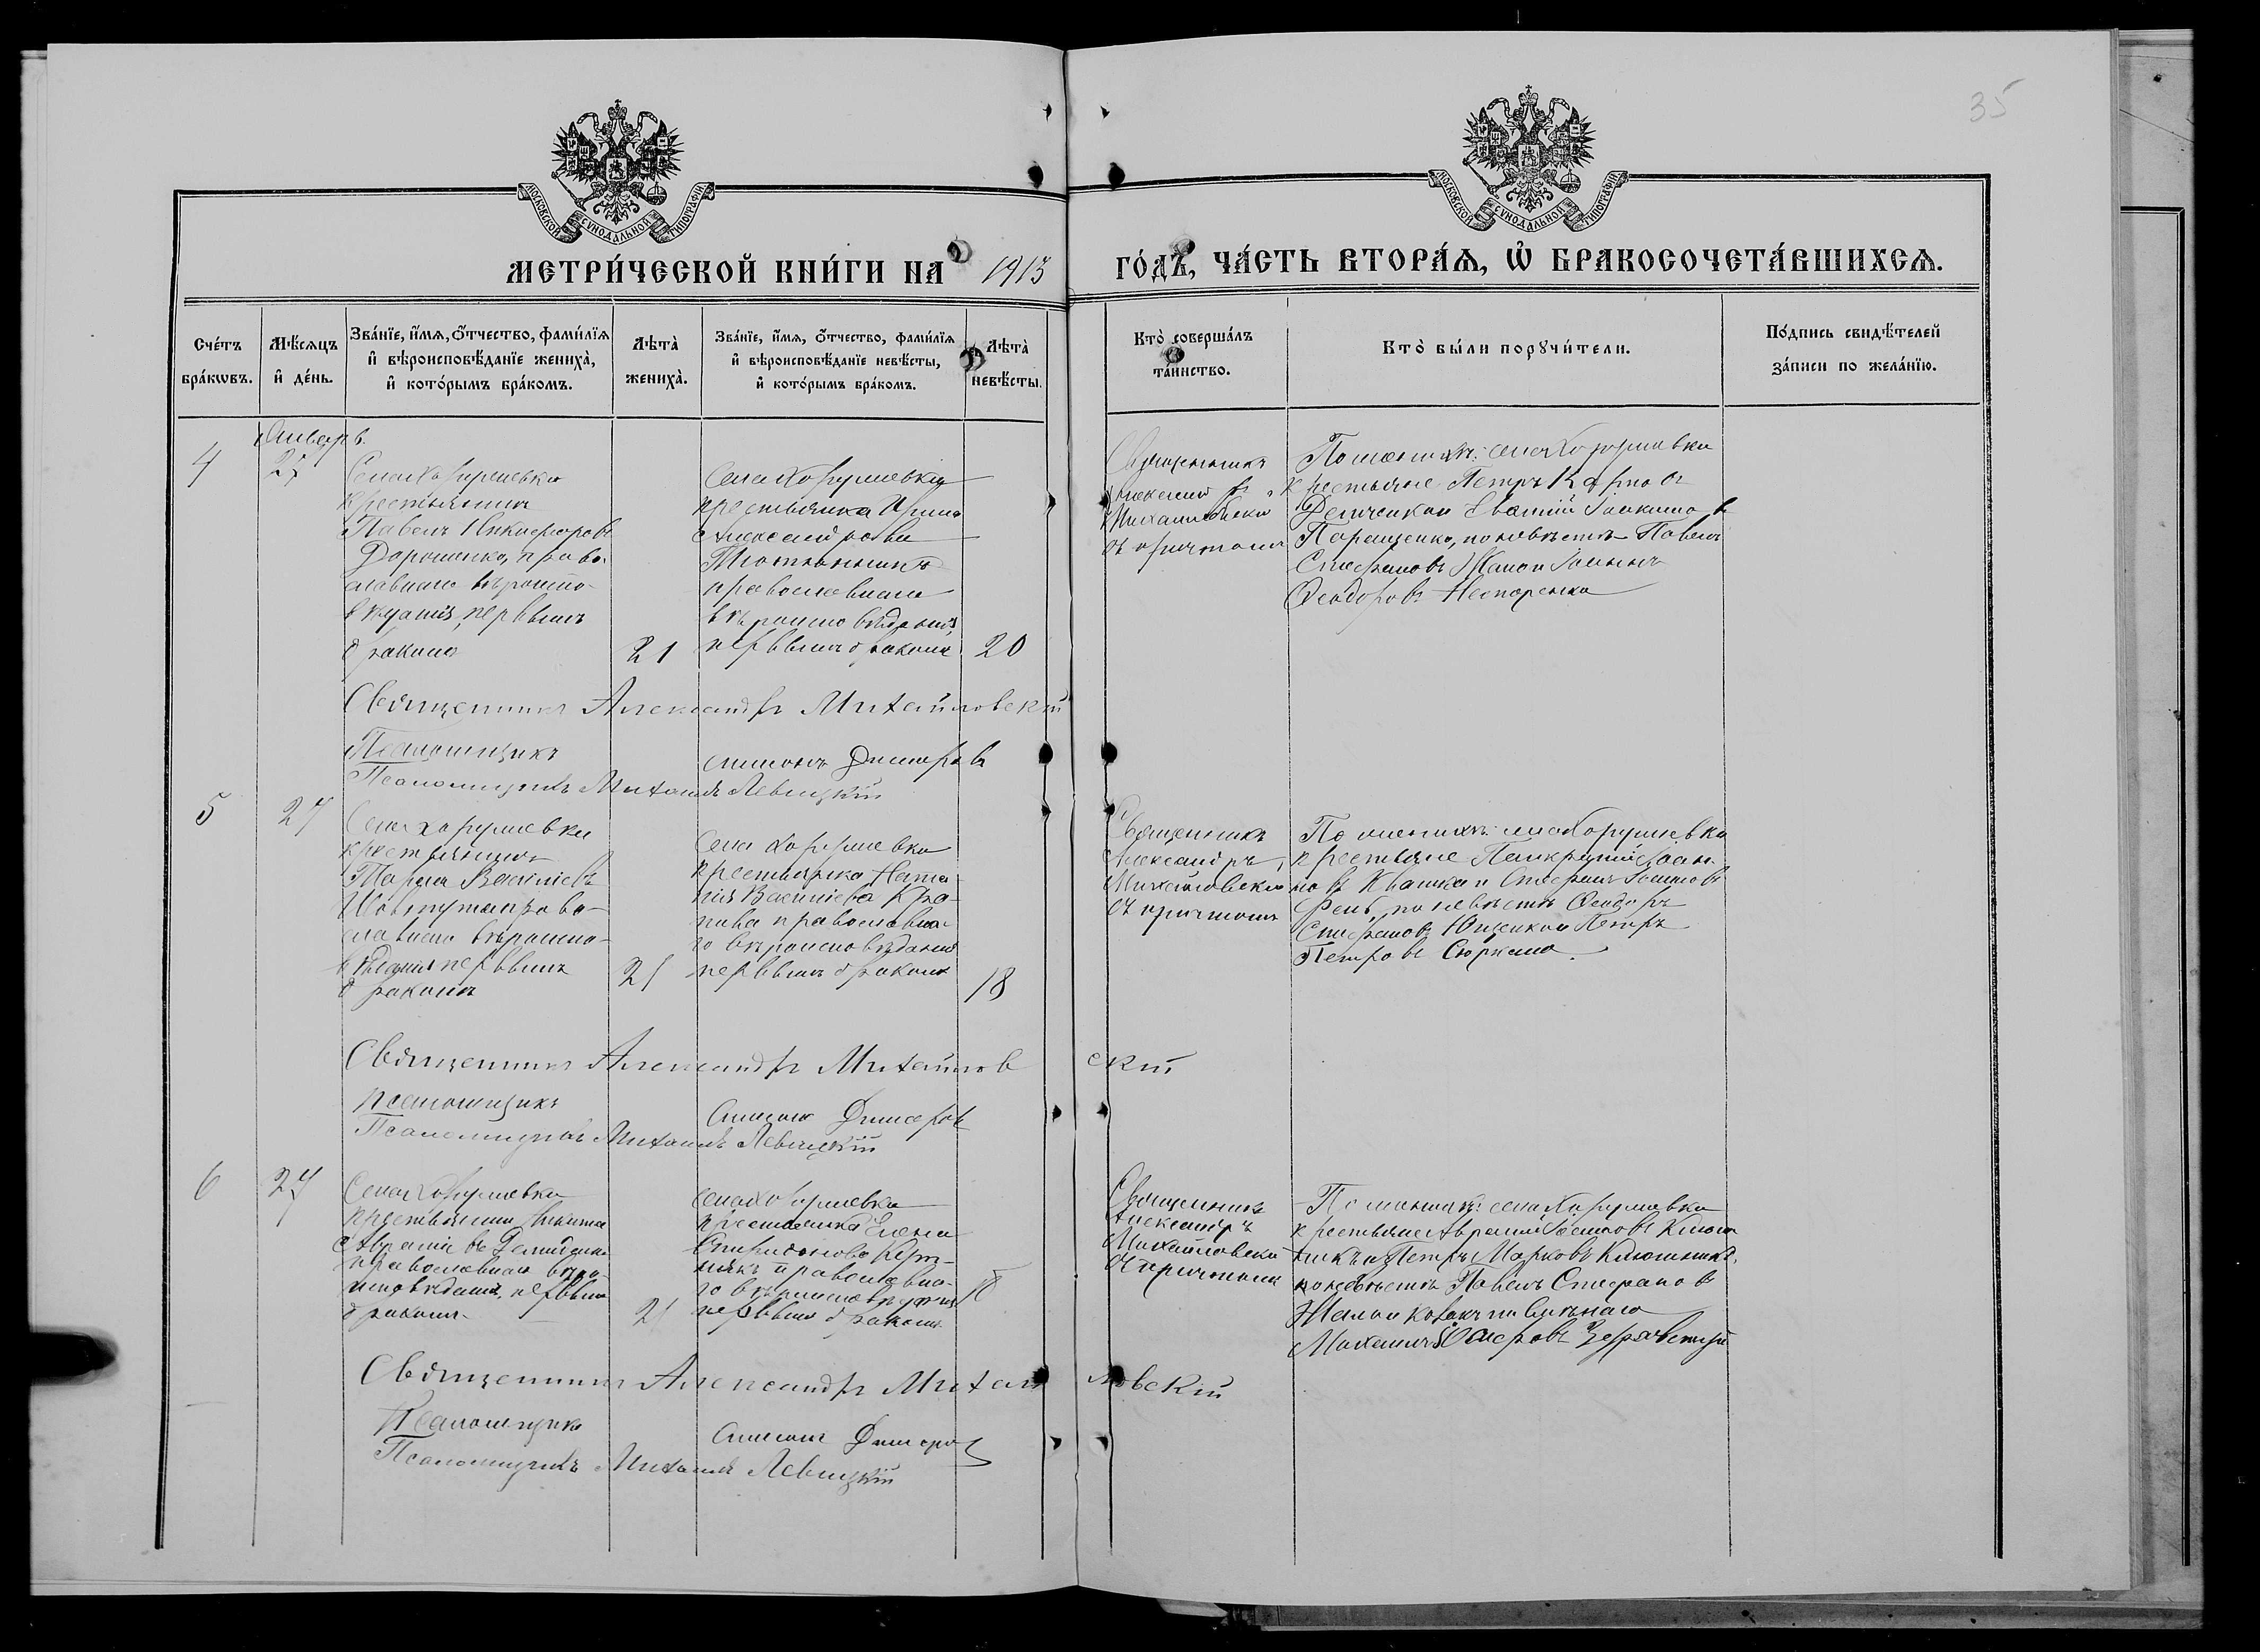 35
МОСКОВСКОЙ СУНОДАЛЬНОЙ ТИПОГРАФІИ
МОСКОВСКОЙ СУНОДАЛЬНОЙ ТИПОГРАФІИ
МЕТРИ́ЧЕСКОЙ КНИ́ГИ НА 1913 ГО́ДЪ, ЧА́СТЬ ВТОРА́Ѧ, Ѡ БРАКОСОЧЕТА́ВШИХСѦ.
Сче́тъ бра́кѡвъ.
Мѣ́сяцъ и де́нь.
Зва́нїе, и́мя, о́тчество, фами́лїя
и вѣроисповѣ́данїе жениха̀,
и кото́рымъ бра́комъ.
Лѣта̀ жениха̀.
Зва́нїе, и́мя, о́тчество, фами́лїя
и вѣроисповѣ́данїе невѣ́сты,
и кото́рымъ бра́комъ.
Лѣта̀ невѣ́сты.
Кто̀ соверша́лъ та́инство.
Кто̀ бы́ли порꙋчи́тели.
По́дпись свидѣ́телей за́писи по жела́нїю.
Январь
4
27
Села Хоружевки
крестьянинъ
Павелъ Никифоровъ
Дорошенко, право-
славнаго вѣроиспо-
вѣданія, первымъ
бракомъ
21
Села Хоружевки
крестьянка Ирина
Александрова
православнаго
вѣроисповѣданія,
первымъ бракомъ
20
Священникъ
Михайловскій
съ причтомъ
По женихѣ: села Хоружевки
крестьяне Петръ Карповъ
по невѣстѣ Павелъ
Стефановъ Жалои
Феодоровъ Нестеренко
Священникъ Александръ Михайловскій
Псаломщикъ Симонъ
Псаломщикъ Михаилъ Левицкій
5
27
Села Хоружевки
крестьянинъ
Василіевъ
Шовкута право-
славнаго вѣроиспо-
вѣданія первымъ
бракомъ
21
Села Хоружевки
крестьянка Ната-
лія Василіева Кро-
пива православна-
го вѣроисповѣданія
первымъ бракомъ
18
Священникъ
Александръ
Михайловскій
съ причтомъ
По женихѣ: села Хоружевки
крестьяне Панкратій Іоан-
новъ Квашка и Стефанъ
по невѣстѣ Феодоръ
Стефановъ Ющенко и Петръ
Петровъ
Священникъ Александръ Михайловскій
Псаломщикъ Симонъ
Псаломщикъ Михаилъ Левицкій
6
27
Села Хоружевки
крестьянинъ Никита
православнаго вѣро-
исповѣданія, первымъ
бракомъ
21
Села Хоружевки
крестьянка Елена
Спиридонова
православна-
го вѣроисповѣданія
первымъ бракомъ
18
Священникъ
Александръ
Михайловскій
съ причтомъ
По женихѣ: села Хоружевки
крестьяне
и Петръ Марковъ Клюшникъ,
по невѣстѣ Павелъ Стефановъ
Жалои
Михаилъ
Священникъ Александръ Михайловскій
Псаломщикъ Симонъ
Псаломщикъ Михаилъ Левицкій